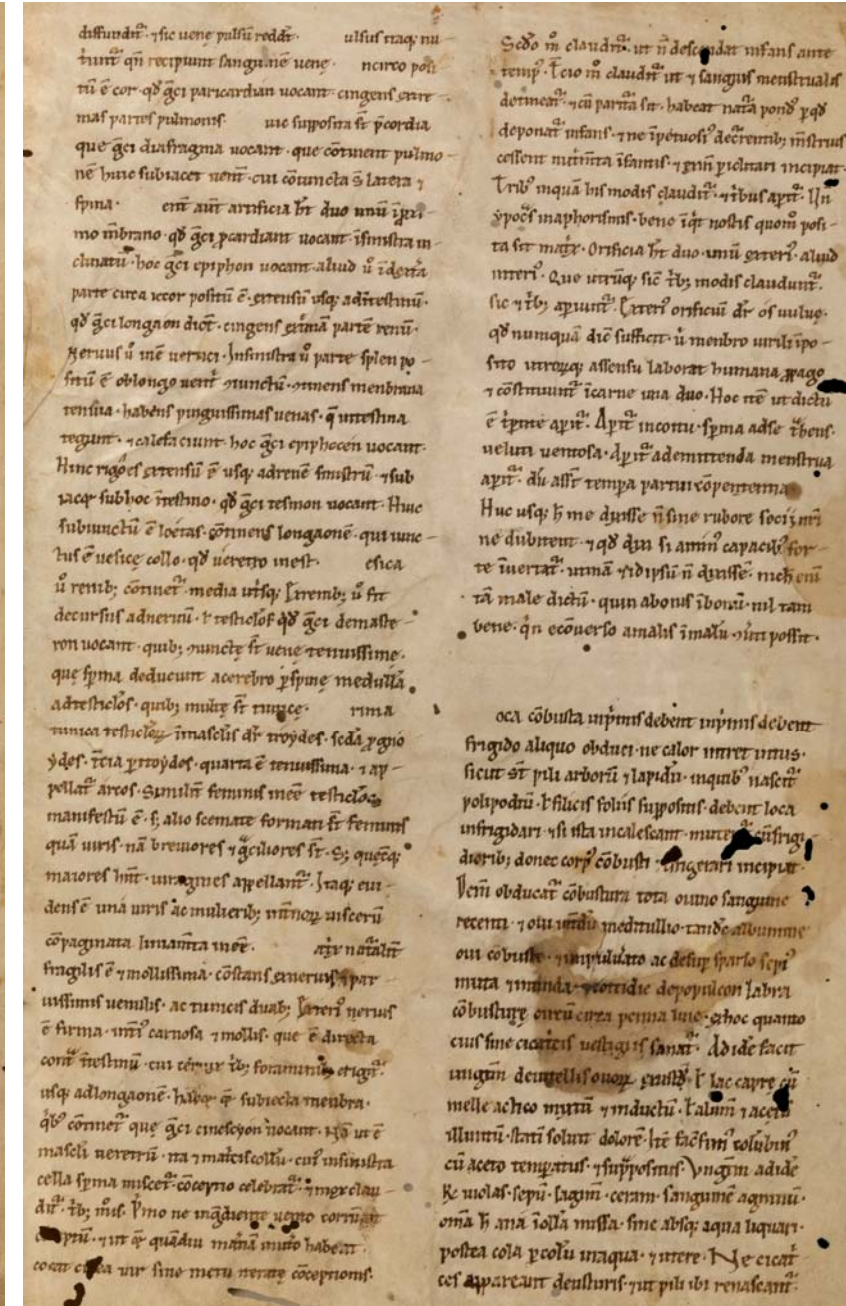 diffundunt᷑. ⁊ sic uenę pulsū reddt᷑. ulsus itaq; nu
t̄unt᷑ qn̄ recipiunt sanguinē uenę. n circo posi
tū ē cor. qd̄ g̃ci paricardian uocant. cingens extre
mas partes pulmonis. uic supposita st̄ p̄cordia
que g̃ci diafragma uocant. que cōtinent pulmo
nē huic subiacet uent̄. cui cōiuncta s̄ latera ⁊
spina. em̄ aut̄ artificia hn̄t duo unū
mo mēbrano. qd̄ g̃ci p̄cardiant uocant. īsinistra in
clinatū. hoc g̃ci epiphon uocant. aliud ū̓ ī dext̄a
parte circa iecor positū ē. extensū usq; ad ītestinū.
qd̄ g̃ci longaon dicūt. cingens ex̄mā partē renū.
Neruus ū̓ inē uertici. In sinistra ū̓ parte splen po
situ ē oblongo uent̄ ⁊iunctū. ⁊tinens menbrana
tensiua. habens pinguissimas uenas. q̄ intestina
tegunt. ⁊ calefaciunt. hoc g̃ci epiphocen uocant.
Hinc extensū ē usq; ad renē sinistrū. ⁊ sub
iacet sub hoc ītestino. qd̄ g̃ci tesmon uocant. Huic
subiunctū ē loetas. cōtinens longaonē. qui iunc
tus ē uesicę collo. qd̄ ueretro inest. esica
ū̓ renib; cōtinet᷑ media utisq;. Exrenib; ū̓ fit
decursus ad neruū. ł testiclos qd̄ g̃ci demaste
ron uocant. quib; ⁊iunctę st̄ uenę tenuissime.
que spīma deducunt a cerebro p̱ spinę medullā
ad testiclos. quib; multę st̄ tunicę. rima
tunica testiclorꝝ ī masclis dr̄ troydes. sc̄da ꝑgnio
ydes. t̄cia ꝑitoydes. quarta ē tenuissima. ⁊ ap
pellat᷑ artos. Similit̄ feminis inēe testiclos
manifestū ē. s; alio scemate formati st̄ feminis
quā uiris. nā breuiores ⁊ g̃ciliores st̄. S; quęcq;
maiores hn̄t. uiragines appellant᷑. Itaq; eui
dens ē una uiris ac mulierib; int̄norꝝ uiscerū
cōpaginata liniam̄ta inēe. atx naturalit̄
fragilis ē ⁊ mollissima. cōstans ex neruis ⁊ par
uissimis uenulis. ac tunicis duab;. Exteri᷒ neruis
ē firma. inti᷒ carnosa ⁊ mollis. que ē directa
cont̄ ītestinū. cui t̄b; foraminib; erigit᷑.
usq; ad longaonē. subiecta menbra.
q̄b᷒ cōtinet᷑ que g̃ci cinescyon uocant. Nā ut ē
mascli ueretrū. ita ⁊ mat̄cis collū. cui᷒ in sinistra
cella spīma miscet᷑. cōceptio celebrat᷑. ⁊ mox clau
dit᷑. t̄b; mīs. P̄mo ne ingrediente uento corrūpat
cōceptū. ⁊ ut quādiu habeat
coeat circa uir sine metu iteratę cōceptionis.
Sc̄do m̊ claudit᷑. ut n̄ descendat infans ante
temp᷒. T̄cio m̊ claudit᷑ ut ⁊ sanguis menstrualis
detineat᷑. ⁊ cū parita sit. habeat natā pond᷒ p̱ qd̄
deponat infans. ⁊ ne īpetuosi᷒ decr̄entib; mīstruis
cessent nut̄im̄ta īfantis. ⁊ periclitari incipiat.
Trib᷒ inquā his modis claudit᷑. ⁊ t̄bus aꝑit᷑. Un̄
ypoc̄s in aphorismis. bene īq̇t nostis quom̊ posi
ta sit matx. Orificia hn̄t duo. unū exteri᷒. aliud
interi᷒. Que utrūq; sic̄ t̄b; modis claudunt᷑.
sic ⁊ t̄b; aꝑiunt᷑. Exteri᷒ orificiū dr̄ os uuluę.
qd̄ numquā dic̄ sufficit. ū̓ menbro uirili īpo
sito utrorūq; assensu laborat humana ꝓpago
⁊ cōstituunt᷑ ī carne una duo. Hoc itē ut dictū
ē t̄pīte aꝑit᷑. Aꝑit᷑ in coitu. spīma ad se t̄hens.
ueluti uentosa. Aꝑit᷑ ad emittenda menstrua
aꝑit᷑. dū asst̄ tempa partui cōpetentia
Huc usq; h̄ me dixisse n̄ sine rubore socii mī
ne dubitent. ⁊ qd̄ dixi si animī capacib᷒ for
te īuertat᷑. utinā ⁊ id ipsū n̄ dixisse. nich̄ eni
tā male dictū. quin a bonis ī bonū. nil tam
bene. qn̄ ecōuerso a malis ī malū ⁊uti possit.
oca cōbusta inp̄mis debent inp̄mis debent
frigido aliquo obduci. ne calor intret intus.
sicut st̄ pili arborū ⁊ lapidū. in quib᷒ nascit᷑
polipodiū. ł filicis foliis suppositis. debent loca
infrigidari. ⁊ si ista incalescant. mutent᷑ cū frigi
diorib; donec corp᷒ cōbusti refrigerari incipiat.
Deīn obducat᷑ cōbustura tota ouino sanguine
recenti. ⁊ oui meditullio. tandē albumine
oui cōbusti. ⁊ in puluīato ac desup sparso sepi᷒
muta ⁊ munda. ⁊ cottidie depopulcon labra
cōbusturę cū penna line. ⁊ hoc quanto
cius sine cicatricis uestigiis sanat᷑. Ad idē facit
ungtm̄ de uitellis ouorꝝ ł lac caprę cū
melle actico mixtū ⁊ inductū. ł alum̄ ⁊ aceto
illinitū. statī soluit dolorē. Itē colūbin᷒
cū aceto temp̱atus. ⁊ suppositus. Vngtm̄ ad idē
R̵ uiolas. sepū. sagim̄. ceram. sanguinē agninū.
om̄a h̄ ana ī olla missa. sine absq; aqua liquari.
postea cola p̱ colū in aqua. ⁊ utere. Ne cicat̄
ces appareant de usturis. ⁊ ut pili ibi renascant᷑.